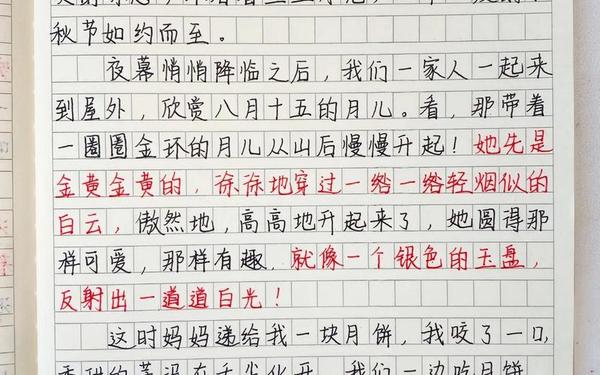 秋节如约而至。
夜幕悄悄降临之后，我们一家人一起来
到屋外，欣赏八月十五的月儿。看，那带着
一圈圈金环的月儿从山后慢慢升起！她先是
金黄金黄的，徐徐地穿过一绺一绺轻烟似的
白云，傲然地，高高地升起来了，她圆得那
样可爱，那样有趣，就像一个银色的玉盘，
反射出一道道白光！
这时妈妈递给我一块月饼，我咬了一口，
我们一边吃月饼